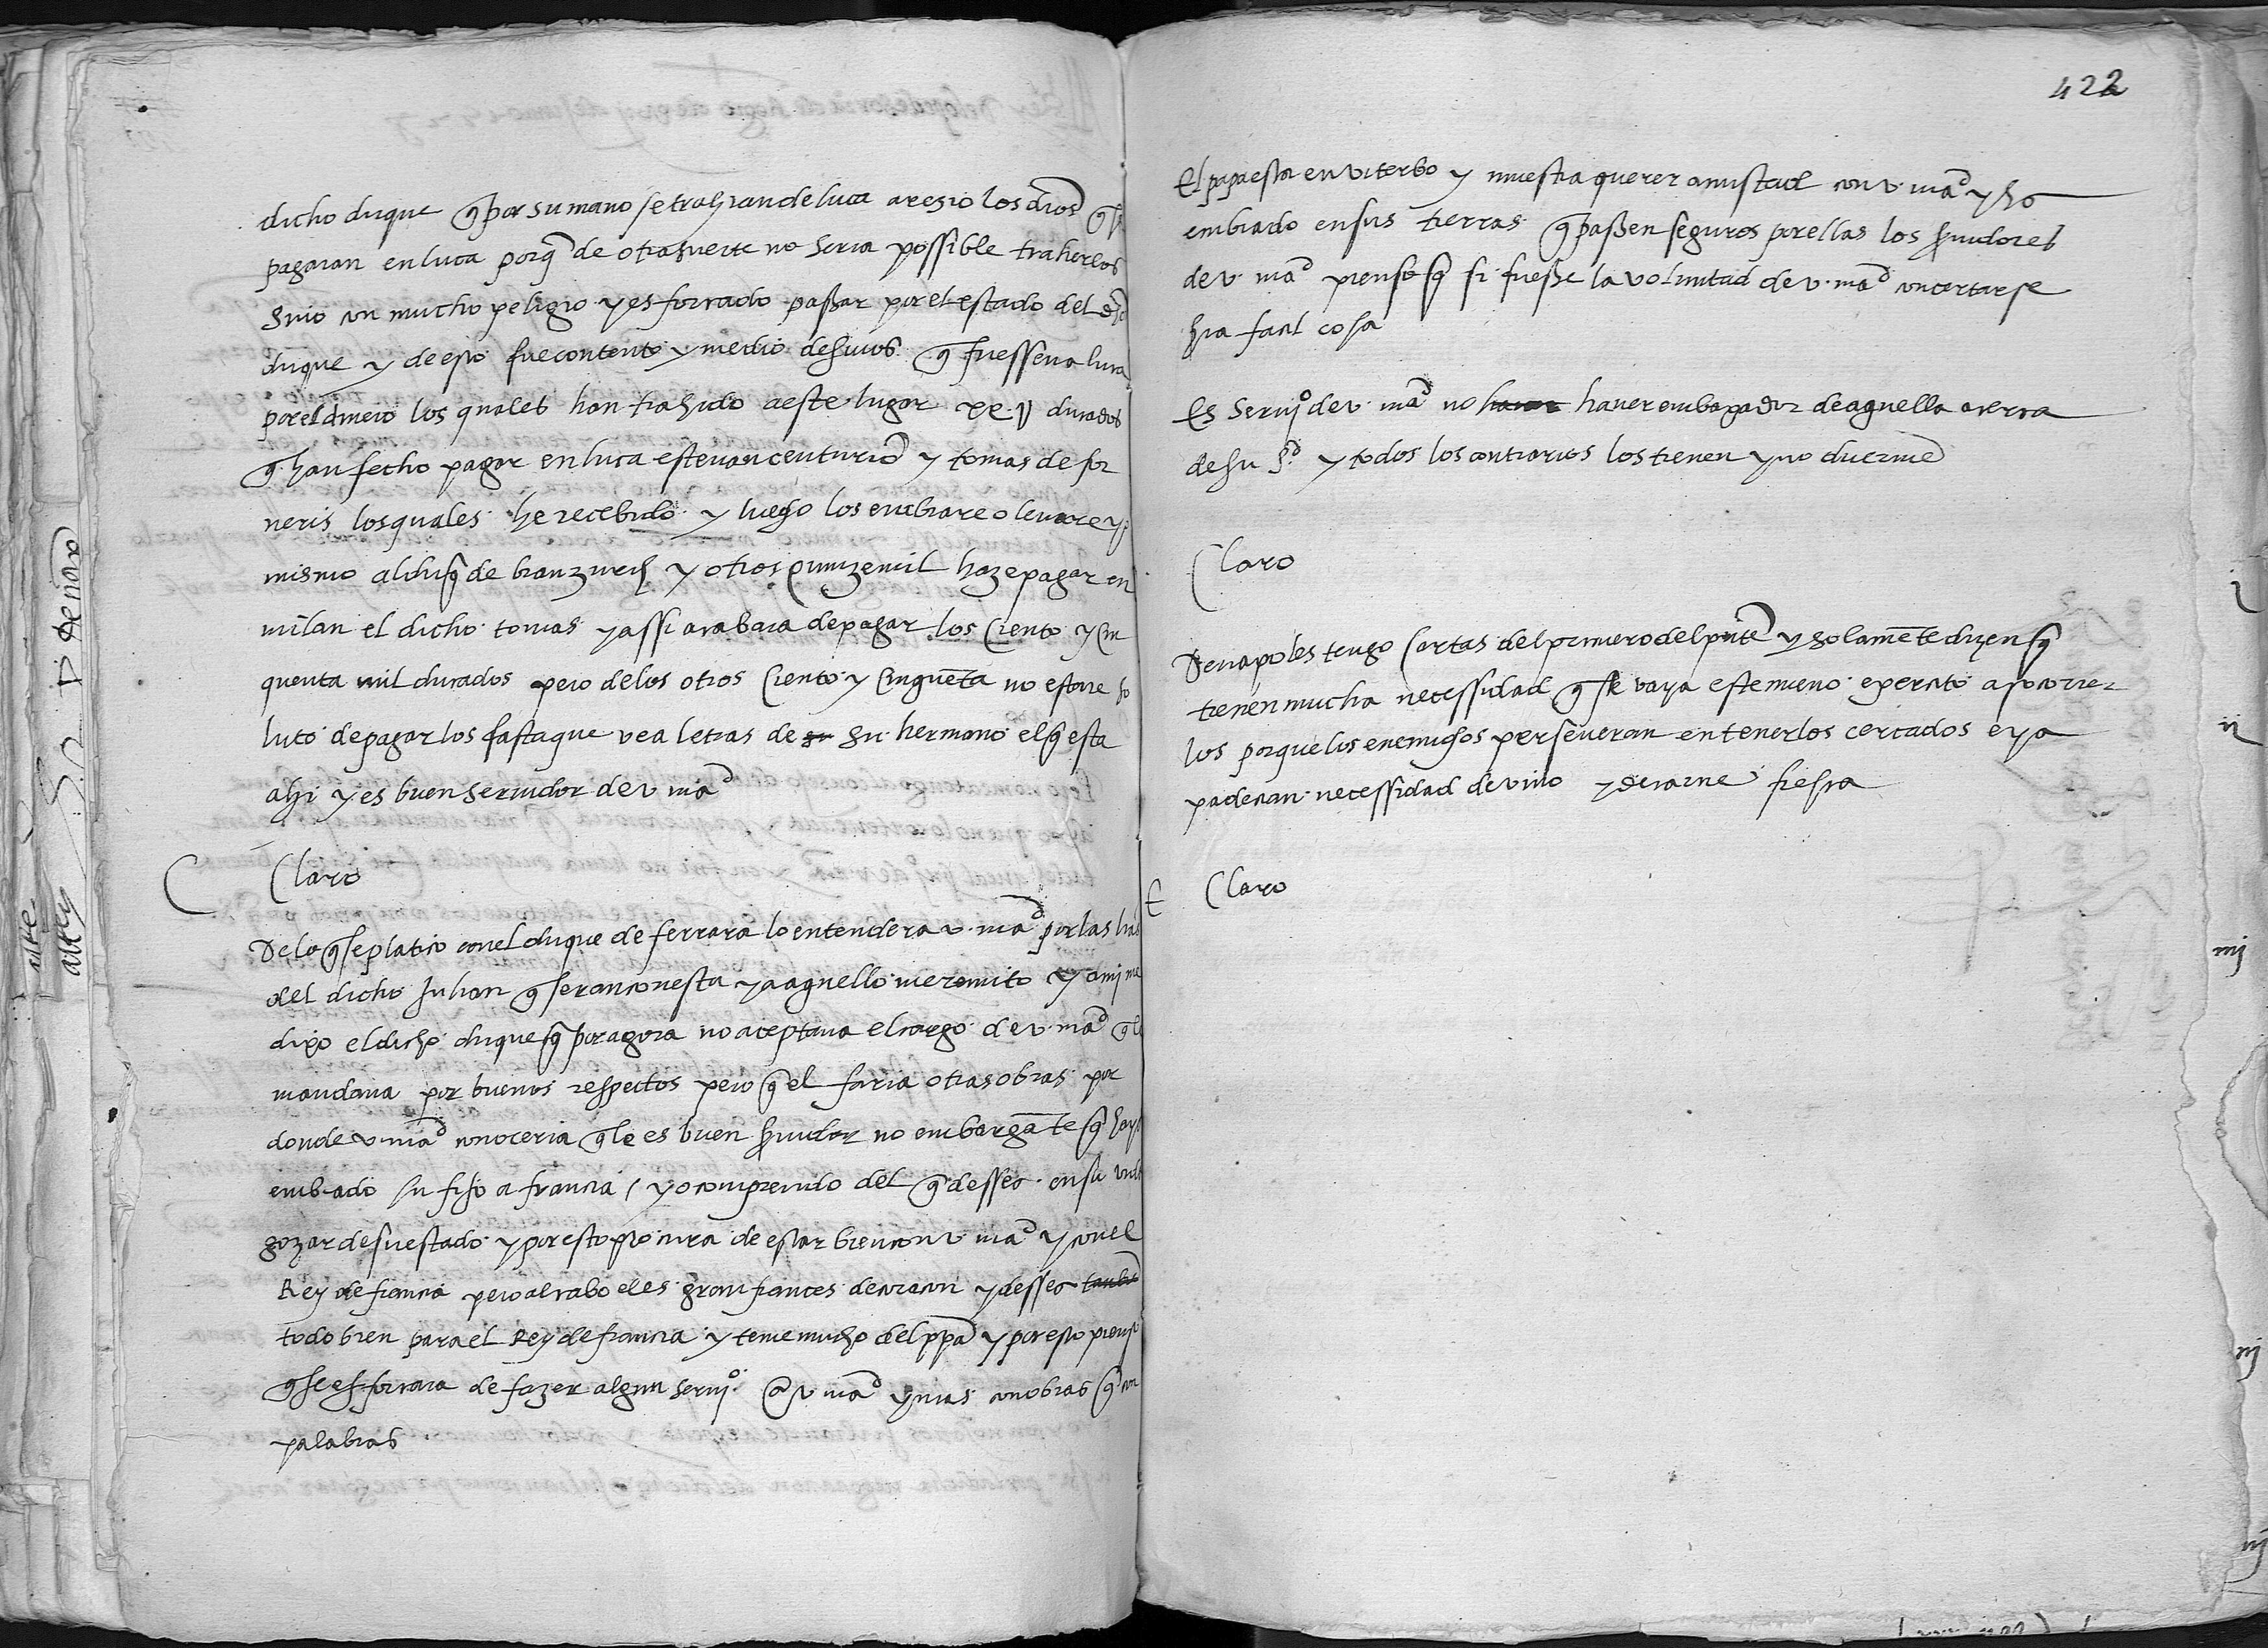 dicho duque q̃ por su mano se trahian de luca a regio los dros q̃ se
pagaran en luca porq̃ de otra suerte no seria possible traherlos
sino con mucho peligro y es forçado passar por el estado del dho
duque y de esto fue contento y medio de suios q̃ fuessen a luca
por el dinero los quales han trahido a este lugar xx V ducados
q̃ han fecho pagar en luca estevan centurio y tomas de for
neris los quales he recebido y luego los embiare o levare yo
mismo al duq̃ de branzuich y otros quinze mil haze pagar en
milan el dicho tomas y assi acabara de pagar los ciento y cin
quenta mil ducados pero de los otros ciento y cinquēta no esta re so
luto de pagarlos fasta que vea letras de su hermano el q̃ esta
ahi y es buen servidor de v mad
Claro
De lo q̃ se platico con el duque de ferrara lo entendera v. mad por las
del dicho Julian q̃ seran con esta y a aquello me remito y a mi me
dixo el dicho duque q̃ por agora no aceptava el cargo de v. mad q̃ le
mandava por buenos respectos pero q̃ el faria otras obras por
donde v. mad conoceria q̃ le es buen s̃vidor no embargāte q̃ haya
embiado su fijo a francia / yo comprendo del q̃ dessea en su vida
gozar de su estado y por esto procura de estar bien con v. mad y con el
Rey de francia pero al cabo el es gran frances de coraçon y dessea
todo bien para el Rey de francia y teme mucho del ppa y por esto pienso
q̃ se esforçara de fazer algun servjo a v mad y mas con obras q̃ con
palabras
422
El papa esta en viterbo y muestra querer amistad con v. mad y ha
embiado en sus tierras q̃ passen seguros por ellas los s̃vidores
de v. mad pienso q̃ si fuesse la voluntad de v. mad concertarse
sria facil cosa
Es servjo de v. mad no haver embaxador de aquella acerca
de su sd y todos los contrarios los tienen y no duermē
Claro
De napoles tengo cartas del primero del pñte y solamēte dizen q̃
tienen mucha necessidad q̃ se vaya este nuevo exercito a socorrer
los porque los enemigos perseveran en tenerlos cercados e ya
padecian necessidad de vino y de carne fresca
Claro